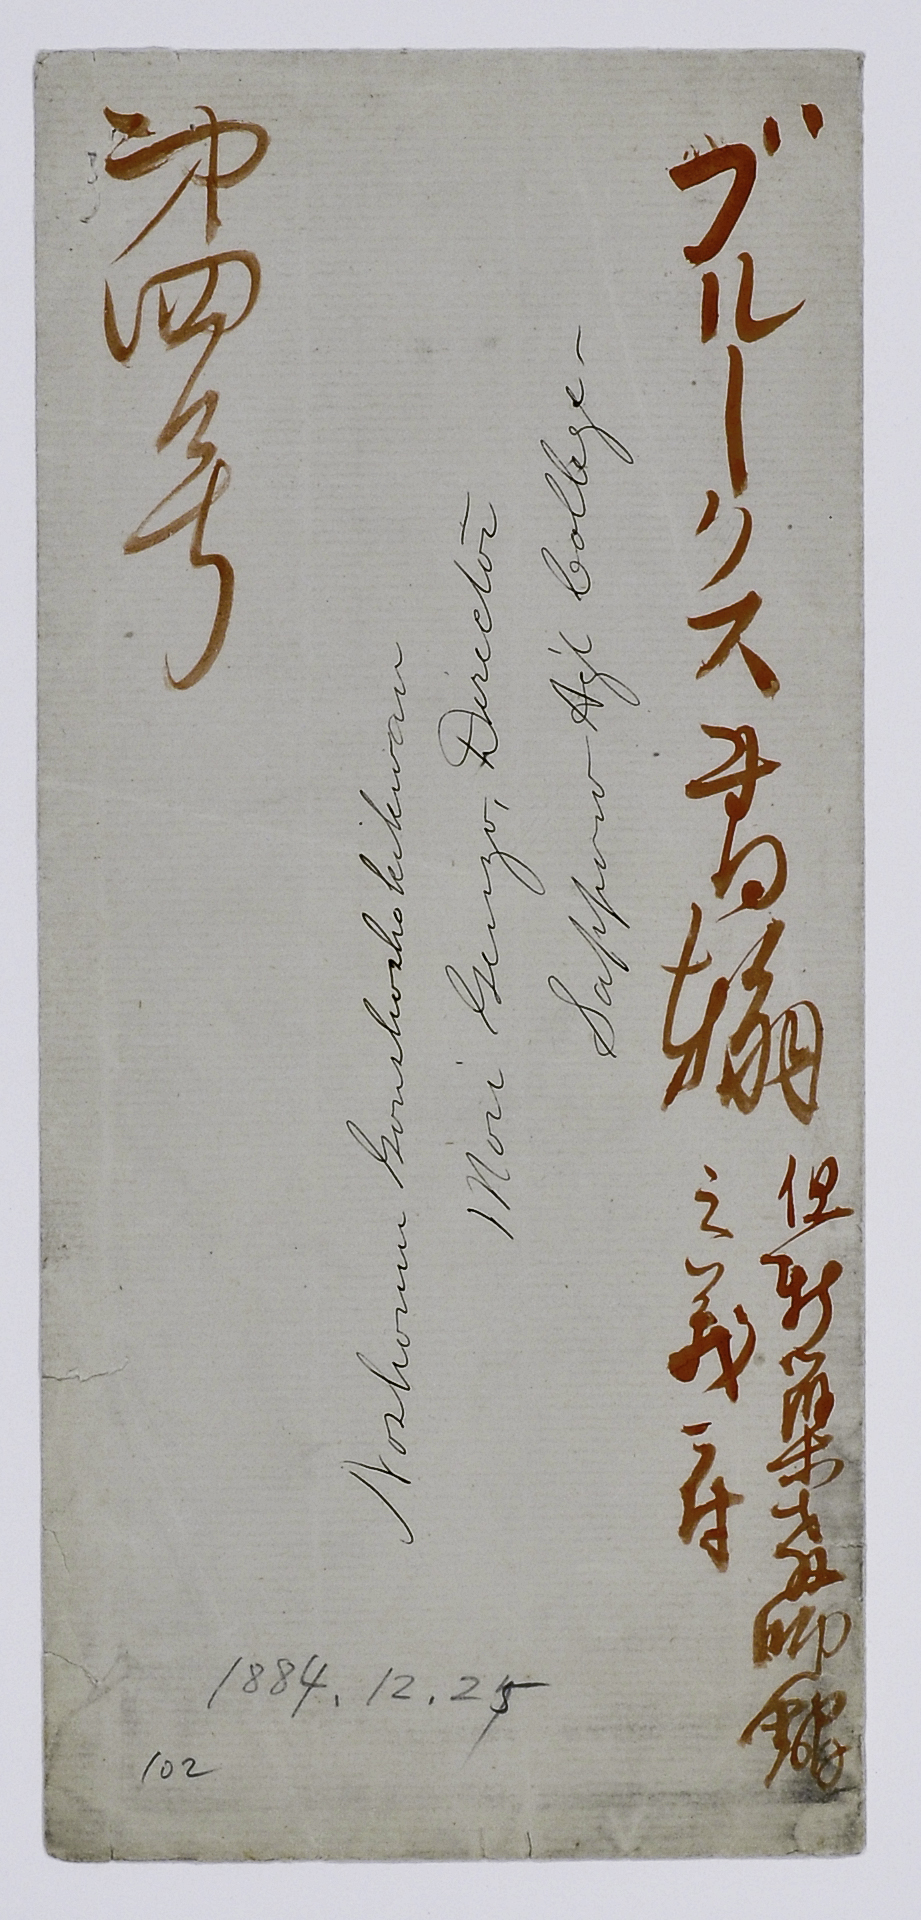 ブルークス書翰
但新築教師館
之義ニ付
第四号
Noshomu Gonshoshokikwan
Mori Genzo, Director
Sapporo Ag'l College-
1884.12.25
102